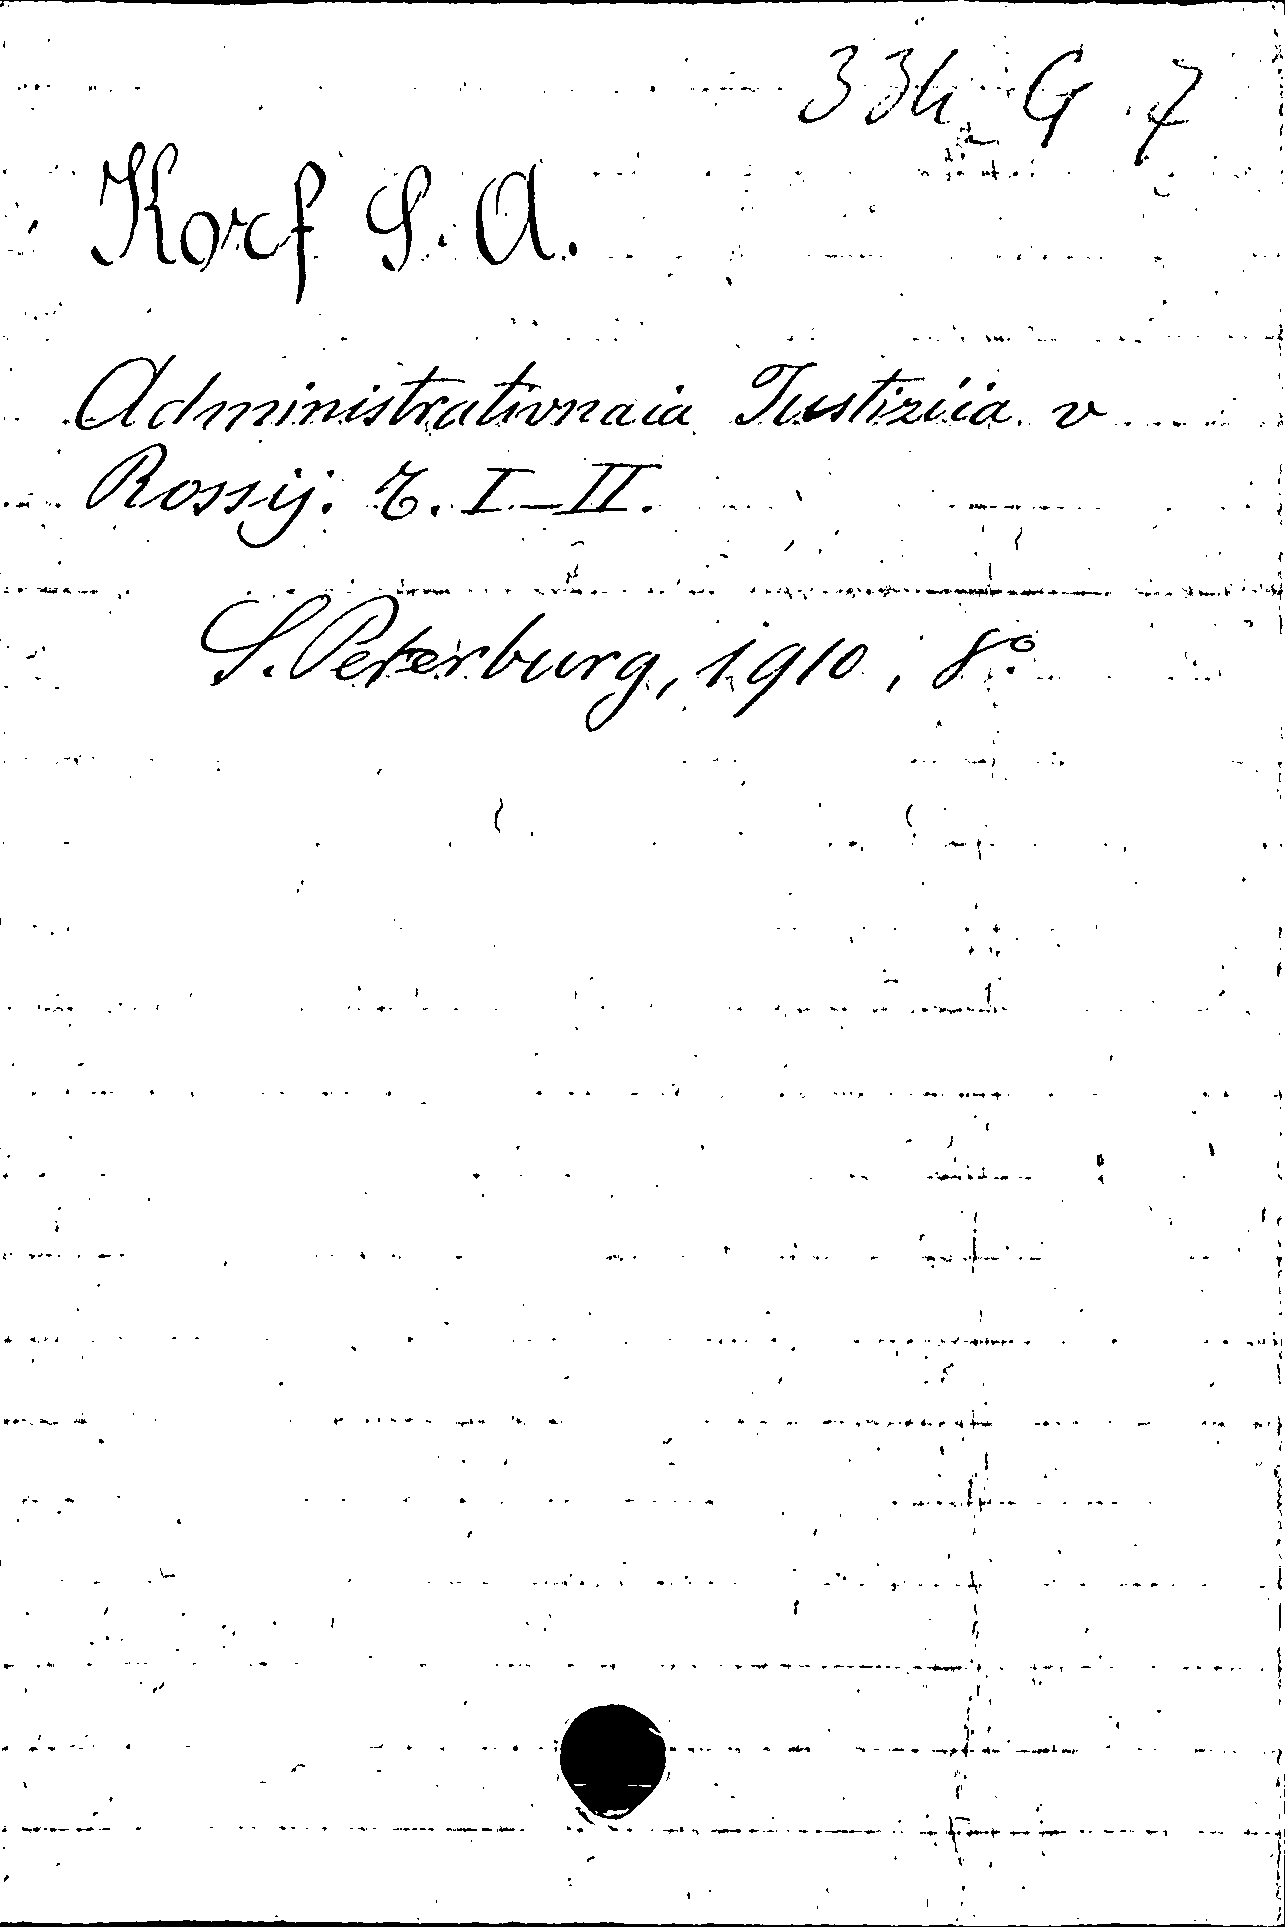 334 G 7
Korf S. A.
Administrativnaia Iustiziia v
Rossij. T. I–II.
S. Peterburg, 1910, 8°